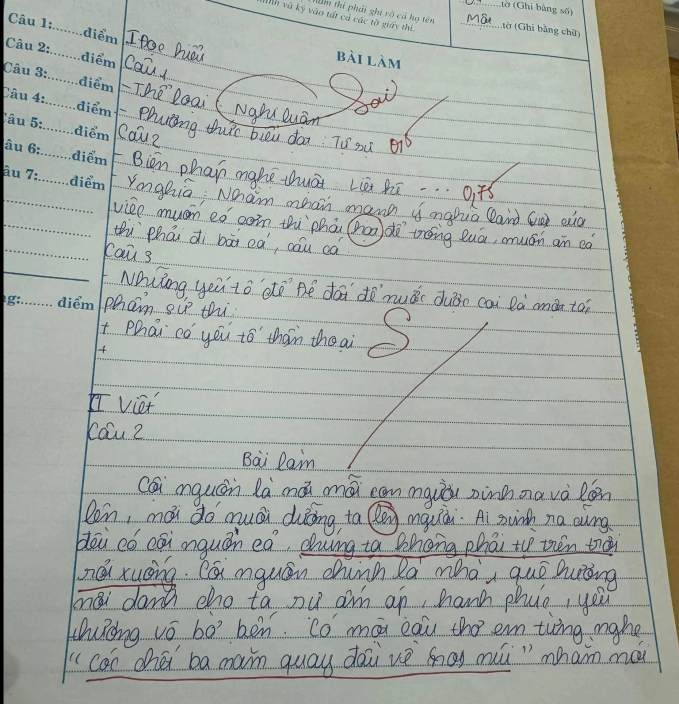 thí phải ghi rõ cả họ tên
và ký vào tất cả các tờ giấy thi.
tờ (Ghi bằng số)
tờ (Ghi bằng chữ)
Câu 1:.......điểm
Câu 2:.......điểm
Câu 3:.......điểm
Câu 4:.......điểm
Câu 5:.......điểm
Câu 6:.......điểm
Câu 7:.......điểm
điểm
BÀI LÀM
I Đọc hiểu
Câu 1
- Thể loại: Nghị luận
Sai
- Phương thức biểu đạt: Tự sự
Câu 2
- Biện pháp nghệ thuật: Liệt kê ...
0,75
- Ý nghĩa: Nhằm nhấn mạnh ý nghĩa
việc muốn có cơm thì phải để trồng lúa, muốn ăn cá
thì phải đi bắt cá, câu cá
Câu 3
- Những yếu tố để Đẻ đất đẻ nước được coi là một tác
phẩm sử thi:
+ Phải có yếu tố thần thoại
+
S
II Viết
Câu 2
Bài làm
Cội nguồn là nơi mỗi con người sinh ra và lớn
lên, nơi đó nuôi dưỡng ta lên người. Ai sinh ra cũng
đều có cội nguồn cả, chúng ta không phải từ trên trời
rơi xuống. Cội nguồn chính là nhà, quê hương
nơi dành cho ta sự ấm áp, hạnh phúc, yêu
thương vô bờ bến. Có một câu thơ em từng nghe
"Cóc chết ba năm quay đầu về núi" nhằm nói